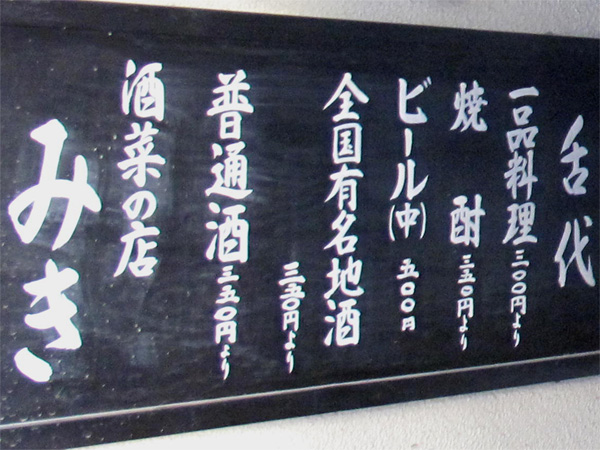 舌代
一品料理三〇〇円より
焼酎三五〇円より
ビール(中)五〇〇円
全国有名地酒
三五〇円より
普通酒三五〇円より
酒菜の店
みき